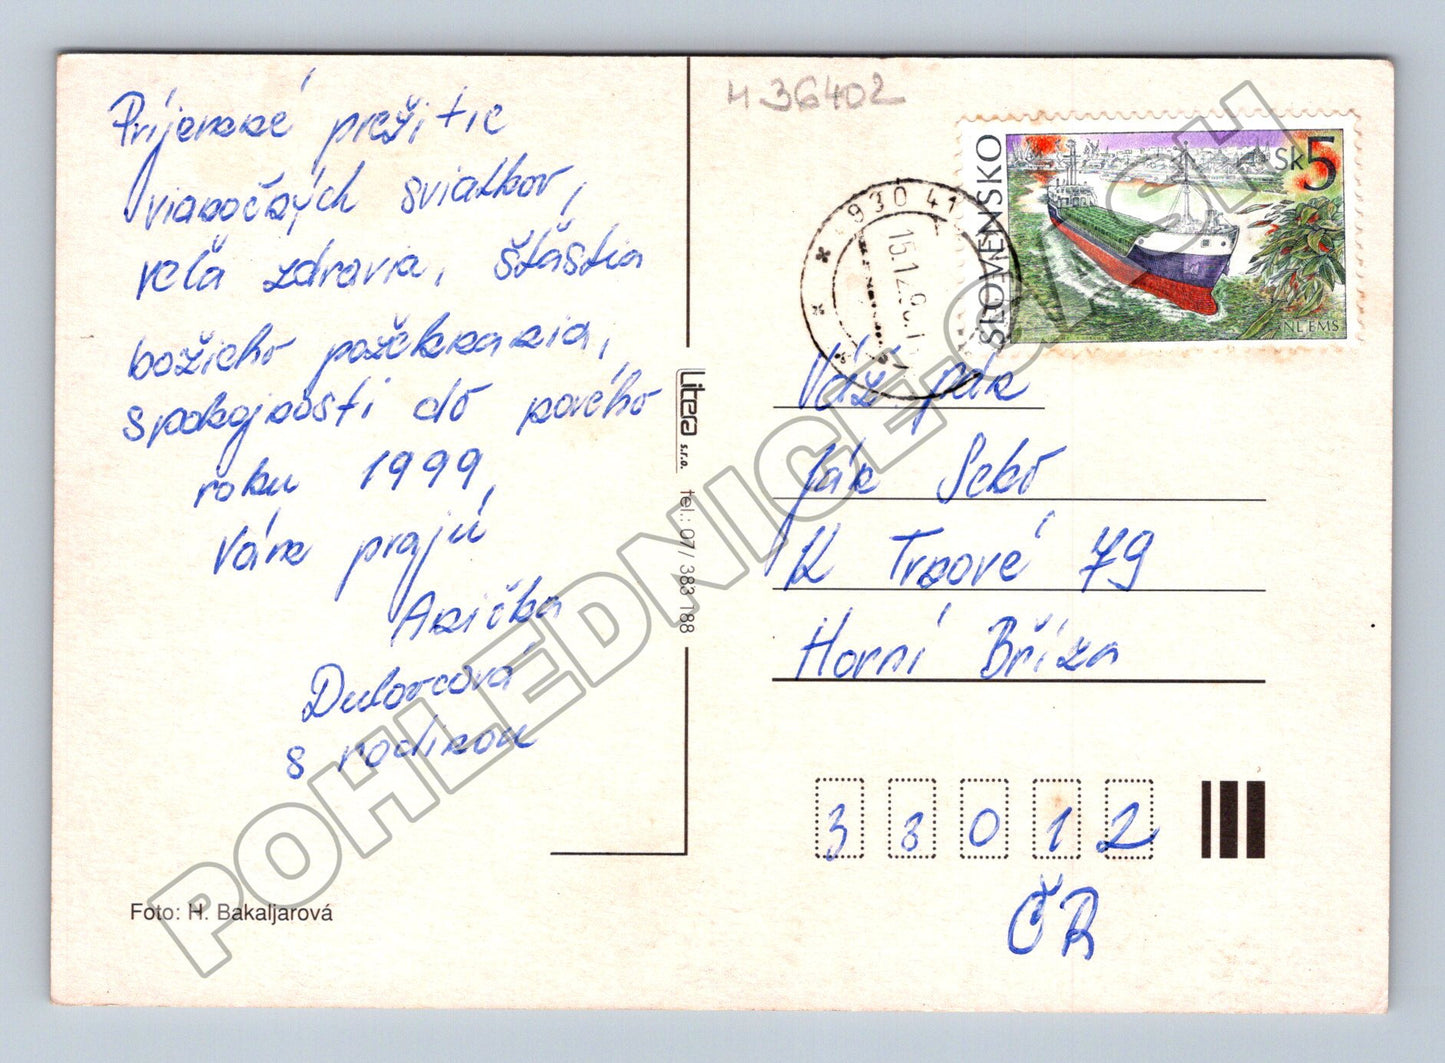 Príjemné prežitie
vianočných sviatkov,
veľa zdravia, šťastia
božieho požehnania,
spokojnosti do nového
roku 1999,
Vám prajú
Anička
s rodinou
Foto: H. Bakaljarová
Litera s.r.o. tel.: 07/ 383 188
36402
SLOVENSKO
Sk 5
930 41
Váž. pán
Ján
K Trnové 79
Horní Bříza
33012
ČR
POHLEDNICE-CASH